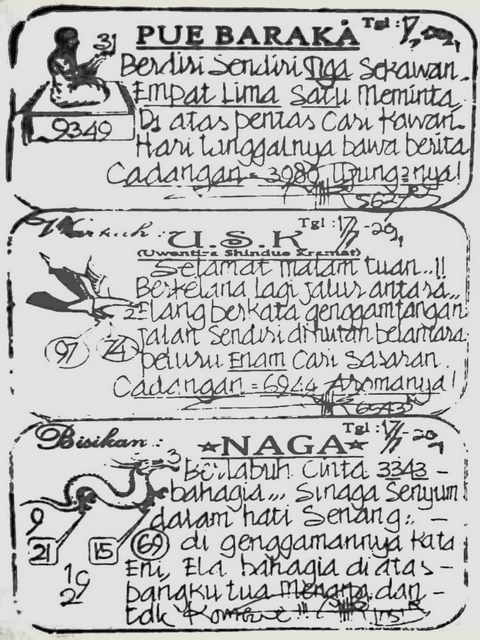 PUE BARAKA Tgl :
31
9349
Berdiri Sendiri Nga Sekawan
Empat Lima Satu Meminta
Di atas pentas Cari Kawan
Hari tunggalnya bawa berita
Cadangan = 3080 Ujungnya!
5627
U.S.K Tgl :
(Uwentira Shindue Kramat)
Selamat malam tuan..!!
Berkelana lagi jalur antara...
Elang berkata genggamtangan
97 74 jalan Sendiri dihutan belantara
peluru Enam Cari Sasaran
Cadangan = 6944 Aromanya!
6543
Bisikan : NAGA Tgl :
3
Berlabuh Cinta 3343 -
bahagia,,, Sinaga Senyum
9 dalam hati Senang :. -
21 15 69 di genggamannya kata
19
2
Eni, Ela bahagia di atas -
bangku tua dan -
tak